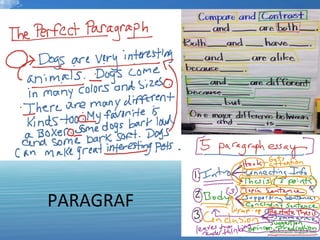 The Perfect Paragraph
Dogs are very interesting
animals. Dogs come
in many colors and sizes.
There are many different
kinds too. My favorite is
a Boxer. Some dogs bark loud
and some bark soft. Dogs
can make great interesting pets.
Compare and Contrast
and are both
Both and have
and are alike
because
and are different
because
but
One major difference between
and is
5 paragraph essay
1 Intro
Hook: Attention
Connecting Info
Thesis: 3 points
2 Body
(3)
Topic Sentence
Supporting Sentences
Concluding Sentence
3 Conclusion
Restate Thesis
PARAGRAF